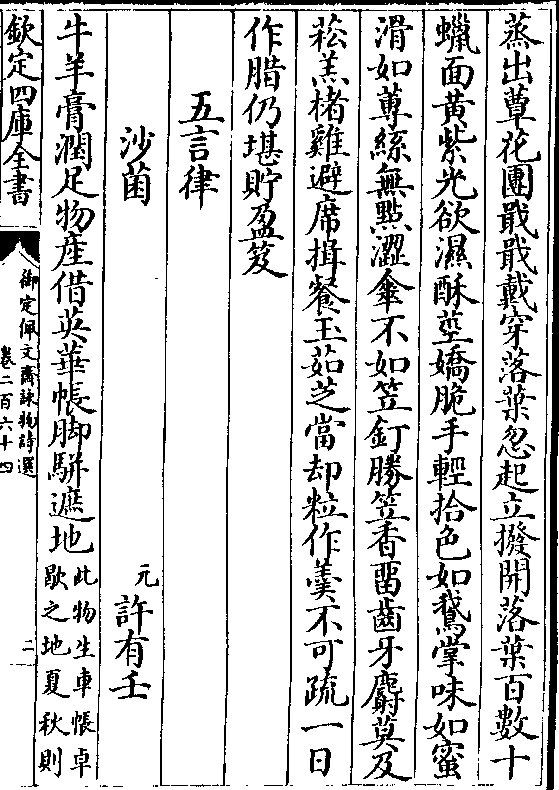 蒸出蕈花團戢戢戴穿落葉忽起立撥開落葉百數十
蠟面黃紫光欲濕酥莖嬌脆手輕拾色如鵞掌味如蜜
滑如蓴絲無點澀傘不如笠釘勝笠香留齒牙麝莫及
菘羔楮雞避席揖餐玉茹芝當却粒作羹不可疏一日
作腊仍堪貯盈笈
五言律
沙菌
元許有壬
牛羊膏潤足物產借英華帳脚駢遮地
此物生車帳卓
歇之地夏秋則
欽定四庫全書
御定佩文齋詠物詩選
卷二百六十四
二